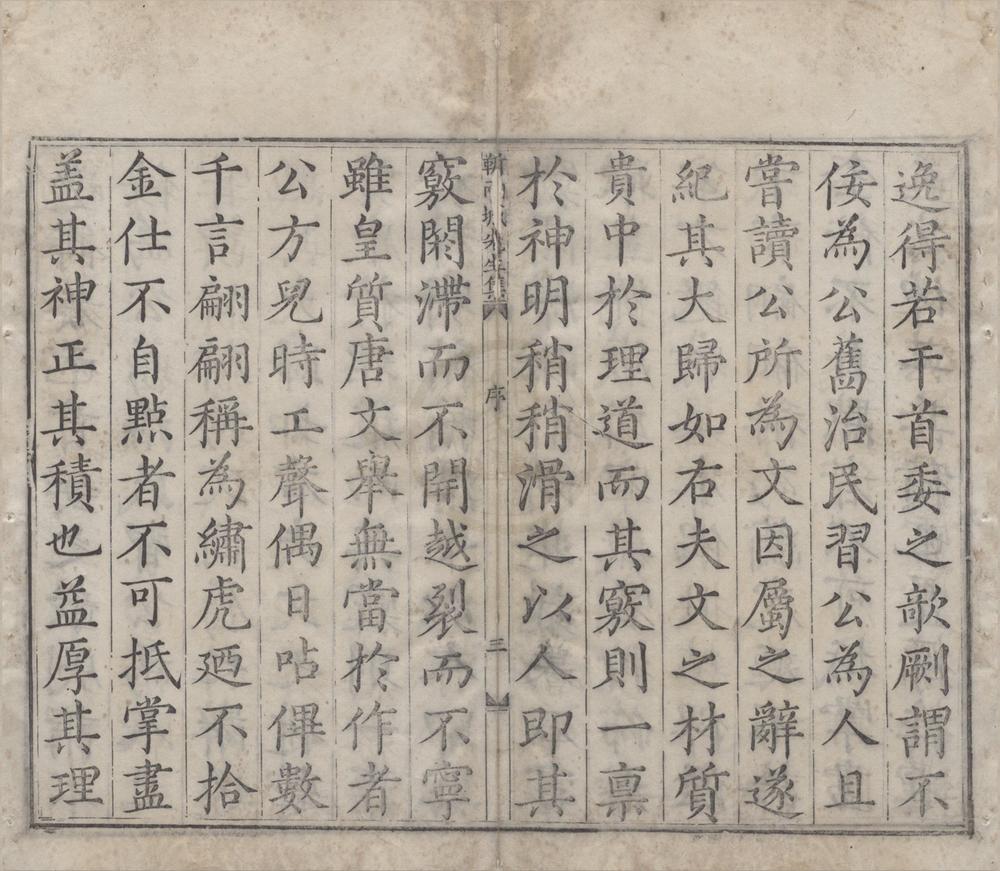 逸得若干首委之歆劂謂不
佞為公舊治民習公為人且
嘗讀公所為文因屬之辭遂
紀其大歸如右夫文之材質
貴中於理道而其竅則一禀
於神明稍稍滑之以人即其
靳兩城先生集
序
三
竅閼滯而不開越裂而不寧
雖皇質唐文舉無當於作者
公方兒時工聲偶日呫僤數
千言翩翩稱為繡虎廼不拾
金仕不自㸃者不可抵掌盡
盖其神正其積也益厚其理